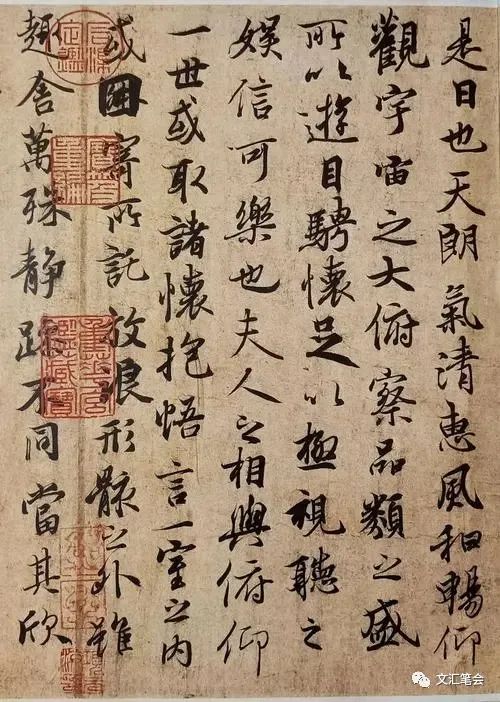 是日也天朗氣清惠風和暢仰
觀宇宙之大俯察品類之盛
所以遊目騁懷足以極視聽之
娛信可樂也夫人之相與俯仰
一世或取諸懷抱悟言一室之內
或因寄所託放浪形骸之外雖
趣舍萬殊静躁不同當其欣
文汇笔会